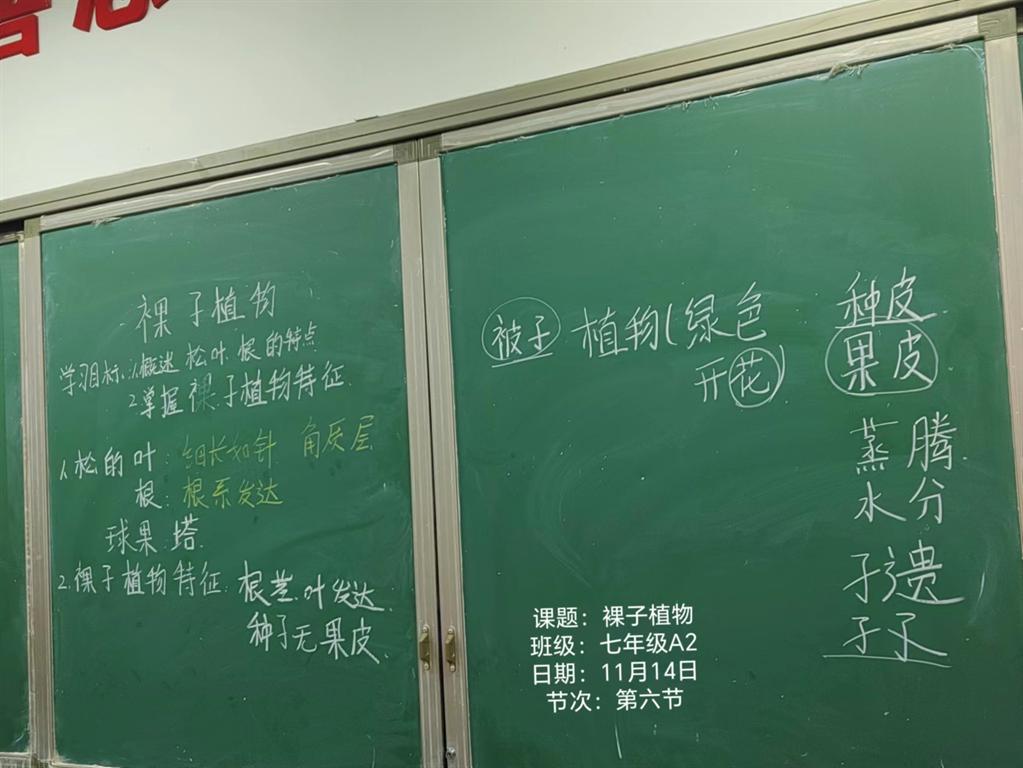 裸子植物
学习目标:1.概述松叶.根的特点
2.掌握裸子植物特征.
1.松的叶:细长如针 角质层
根:根系发达
球果:塔
2.裸子植物特征:根茎.叶发达.
种子无果皮.
被子植物(绿色
开花)
种皮
果皮
蒸腾
水分
孑遗
孑孓
课题:裸子植物
班级:七年级A2
日期:11月14日
节次:第六节